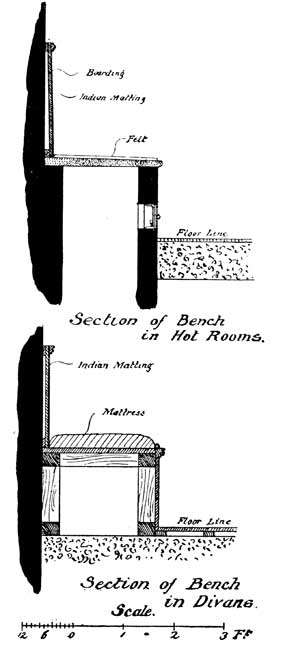 Boarding
Indian Matting
Felt
Floor Line
Section of Bench
in Hot Rooms.
Indian Matting
Mattress
Floor Line
Section of Bench
in Divans.
Scale.
12 6 0 1 2 3 Ft